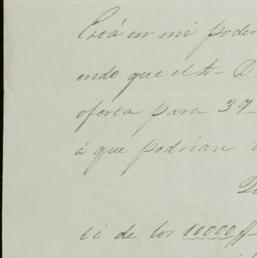 Está en mi poder
endo que el Sr. D
oferta para 37
á que podrian
ti de los 10000 ff